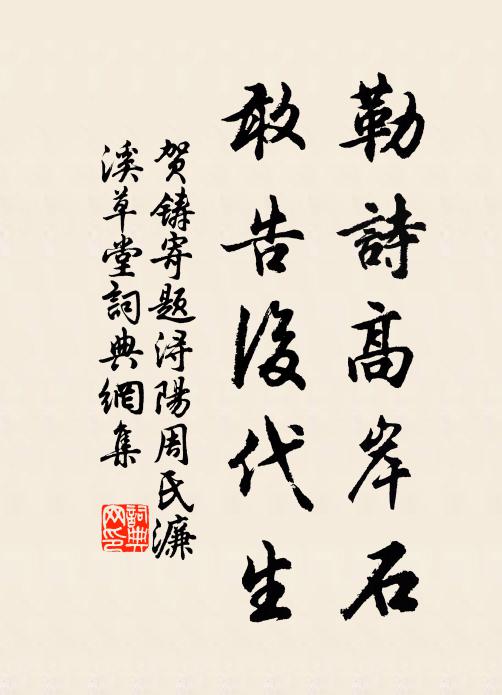 勒詩高岸石
敢告後代生
贺鑄寄題潯陽周氏濂
溪草堂詞典網集
詞典網印